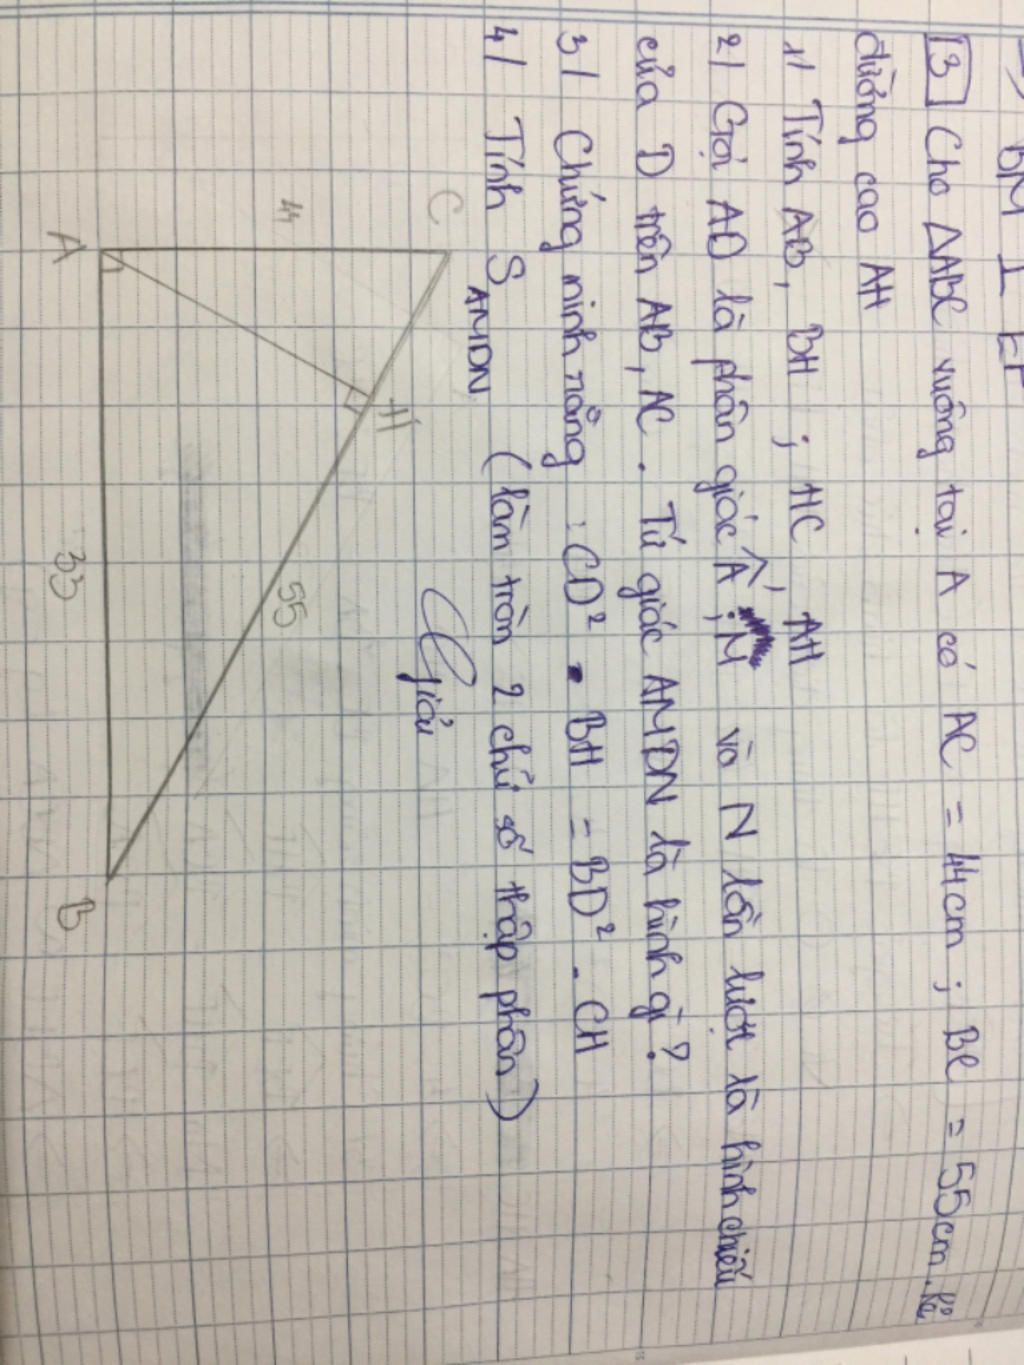 → BM ⊥ EF
3 Cho ΔABC vuông tại A có AC = 44cm ; BC = 55cm. kẻ
đường cao AH
1/ Tính AB, BH ; HC, AH
2/ Gọi AD là phân giác Â ; M và N lần lượt là hình chiếu
của D trên AB, AC. Tứ giác AMDN là hình gì?
3/ Chứng minh rằng : CD² . BH = BD² . CH
4/ Tính S AMDN (làm tròn 2 chữ số thập phân)
Giải
C
44
H
55
A
33
B